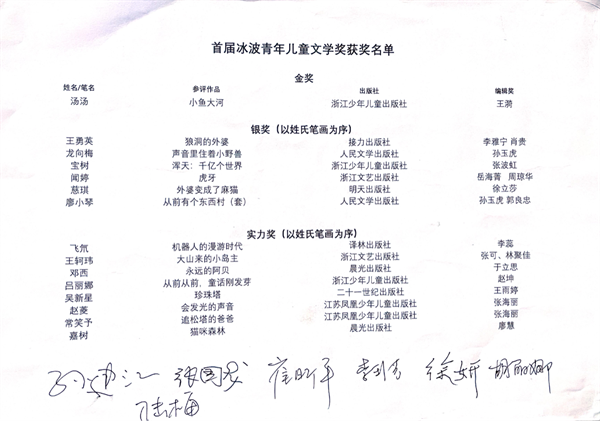 首届冰波青年儿童文学奖获奖名单
金奖
姓名/笔名 参评作品 出版社 编辑奖
汤汤 小鱼大河 浙江少年儿童出版社 王漪
银奖（以姓氏笔画为序）
王勇英 狼洞的外婆 接力出版社 李雅宁 肖贵
龙向梅 声音里住着小野兽 人民文学出版社 孙玉虎
宝树 浑天：千亿个世界 浙江少年儿童出版社 张波虹
闻婷 虎牙 浙江文艺出版社 岳海菁 周琼华
慈琪 外婆变成了麻猫 明天出版社 徐立莎
廖小琴 从前有个东西村（套） 人民文学出版社 孙玉虎 郭良忠
实力奖（以姓氏笔画为序）
飞氘 机器人的漫游时代 译林出版社 李蕊
王轲玮 大山来的小岛主 浙江文艺出版社 张可、林聚佳
邓西 永远的阿贝 晨光出版社 于立思
吕丽娜 从前从前，童话刚发芽 浙江少年儿童出版社 赵坤
吴新星 珍珠塔 二十一世纪出版社 王雨婷
赵菱 会发光的声音 江苏凤凰少年儿童出版社 张海丽
常笑予 追松塔的爸爸 江苏凤凰少年儿童出版社 张海丽
嘉树 猫咪森林 晨光出版社 廖慧
孙建江 张国龙 崔昕平 李利芳 徐妍 胡丽娜
陆梅